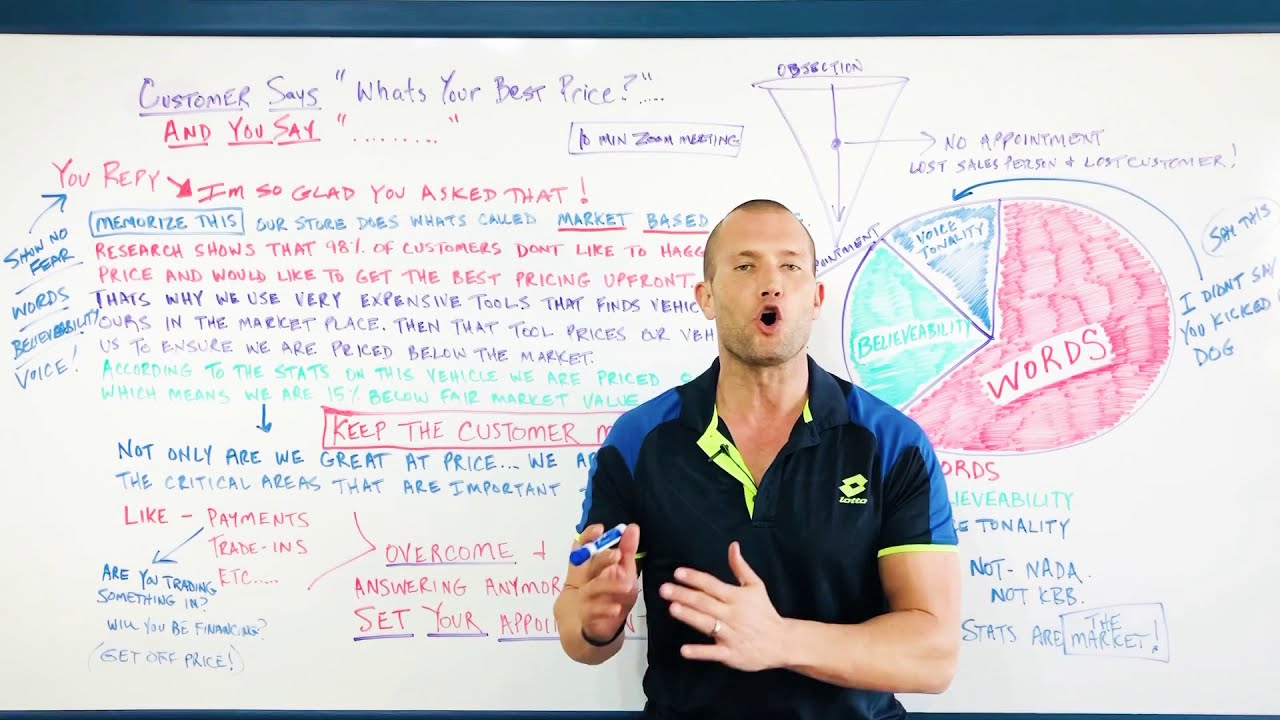 CUSTOMER SAYS "WHATS YOUR BEST PRICE?"....
AND YOU SAY "........."
10 MIN ZOOM MEETING
YOU REPY
I'M SO GLAD YOU ASKED THAT!
MEMORIZE THIS OUR STORE DOES WHATS CALLED MARKET BASED
RESEARCH SHOWS THAT 98% OF CUSTOMERS DONT LIKE TO HAGG
PRICE AND WOULD LIKE TO GET THE BEST PRICING UPFRONT.
THATS WHY WE USE VERY EXPENSIVE TOOLS THAT FINDS VEHIC
OURS IN THE MARKET PLACE. THEN THAT TOOL PRICES OUR VEH
US TO ENSURE WE ARE PRICED BELOW THE MARKET.
ACCORDING TO THE STATS ON THIS VEHICLE WE ARE PRICED
WHICH MEANS WE ARE 15% BELOW FAIR MARKET VALUE
SHOW NO
FEAR
WORDS
BELIEVEABILITY
VOICE!
KEEP THE CUSTOMER
NOT ONLY ARE WE GREAT AT PRICE... WE AR
THE CRITICAL AREAS THAT ARE IMPORTANT
LIKE - PAYMENTS
TRADE-INS
ETC.....
ARE YOU TRADING
SOMETHING IN?
WILL YOU BE FINANCING?
(GET OFF PRICE!)
OVERCOME +
ANSWERING ANYMOR
SET YOUR APPOI NT
OBSECTION
NO APPOINTMENT
LOST SALES PERSON + LOST CUSTOMER!
POINTMENT
VOICE
TONALITY
BELIEVEABILITY
WORDS
SAY THIS
I DIDNT SAY
YOU KICKED
DOG
ORDS
LIEVEABILITY
E TONALITY
NOT- NADA.
NOT KBB.
STATS ARE THE
MARKET!
lotto